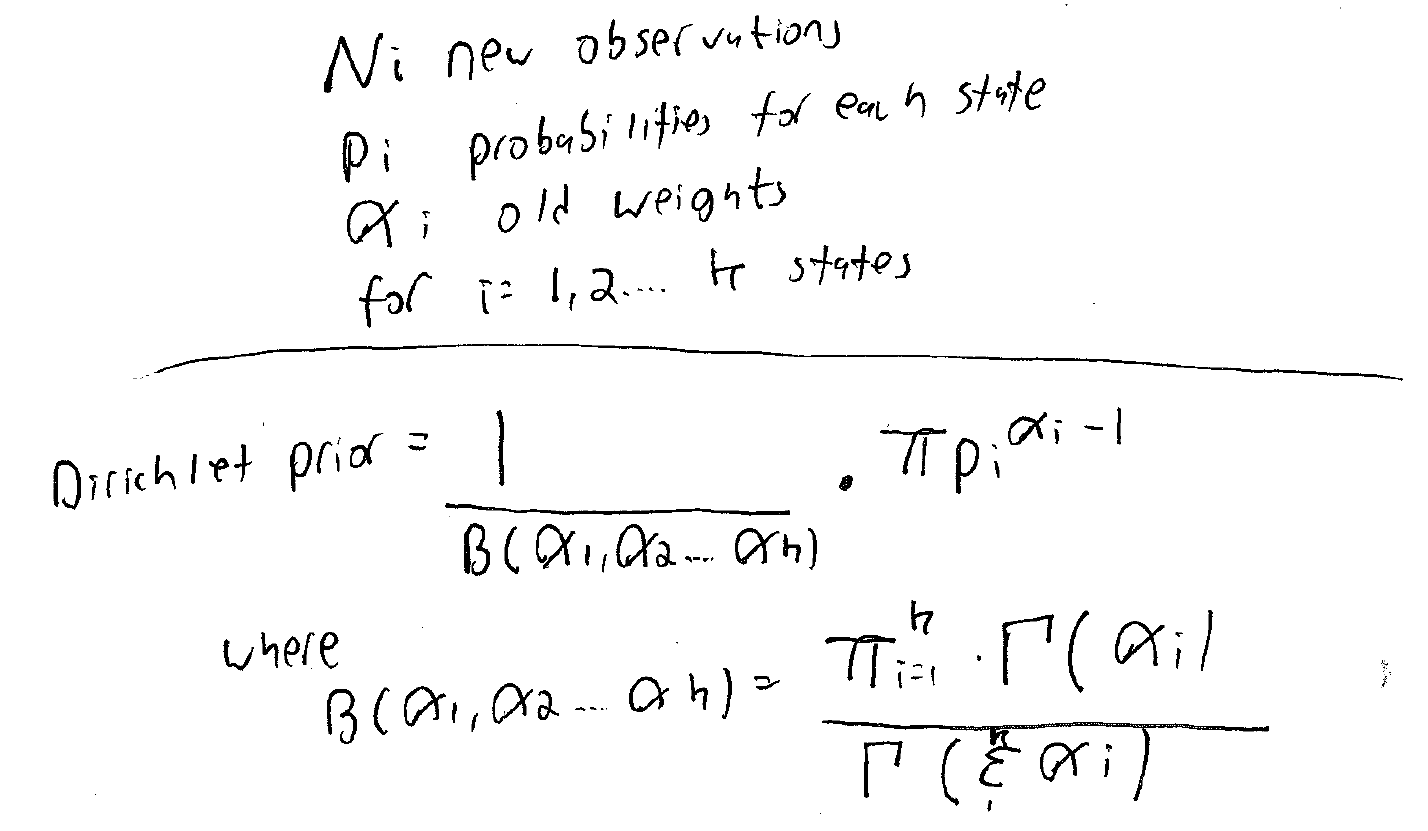 Ni new observations
pi probabilities for each state
αi old weights
for i= 1,2.... k states
Dirichlet prior = 1 / B(α1,α2... αk) . π pi^αi-1
where
B(α1,α2... αk) = π^k i=1 . Γ(αi) / Γ(Σ^k 1 αi)